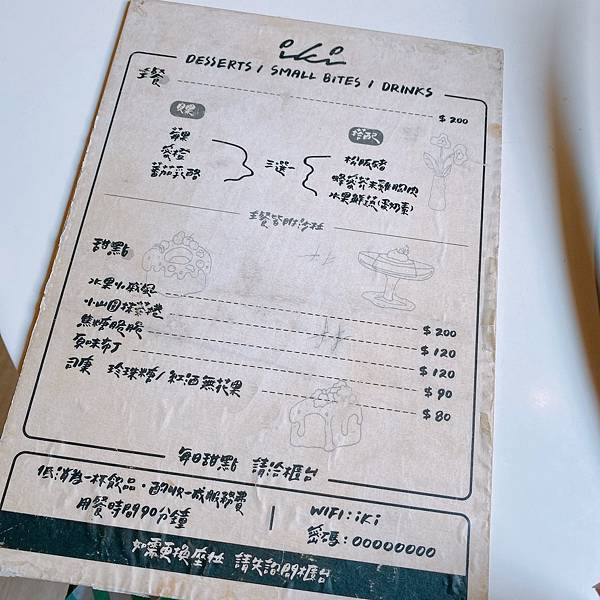 iki
DESSERTS / SMALL BITES / DRINKS
主餐 $200
貝果 搭配
蘋果 松阪豬
蜜橙 三選一 蜂蜜芥末雞胸肉
蕃茄乳酪 水果鮮蔬(蛋奶素)
主餐皆附沙拉
甜點
水果小戚風 $200
小山園抹茶捲 $120
焦糖脆脆 $120
原味布丁 $90
司康 珍珠糖/紅酒無花果 $80
每日甜點 請洽櫃台
低消為一杯飲品・酌收一成服務費
用餐時間90分鐘
WIFI:iki
密碼:00000000
如需更換座位 請先詢問櫃台